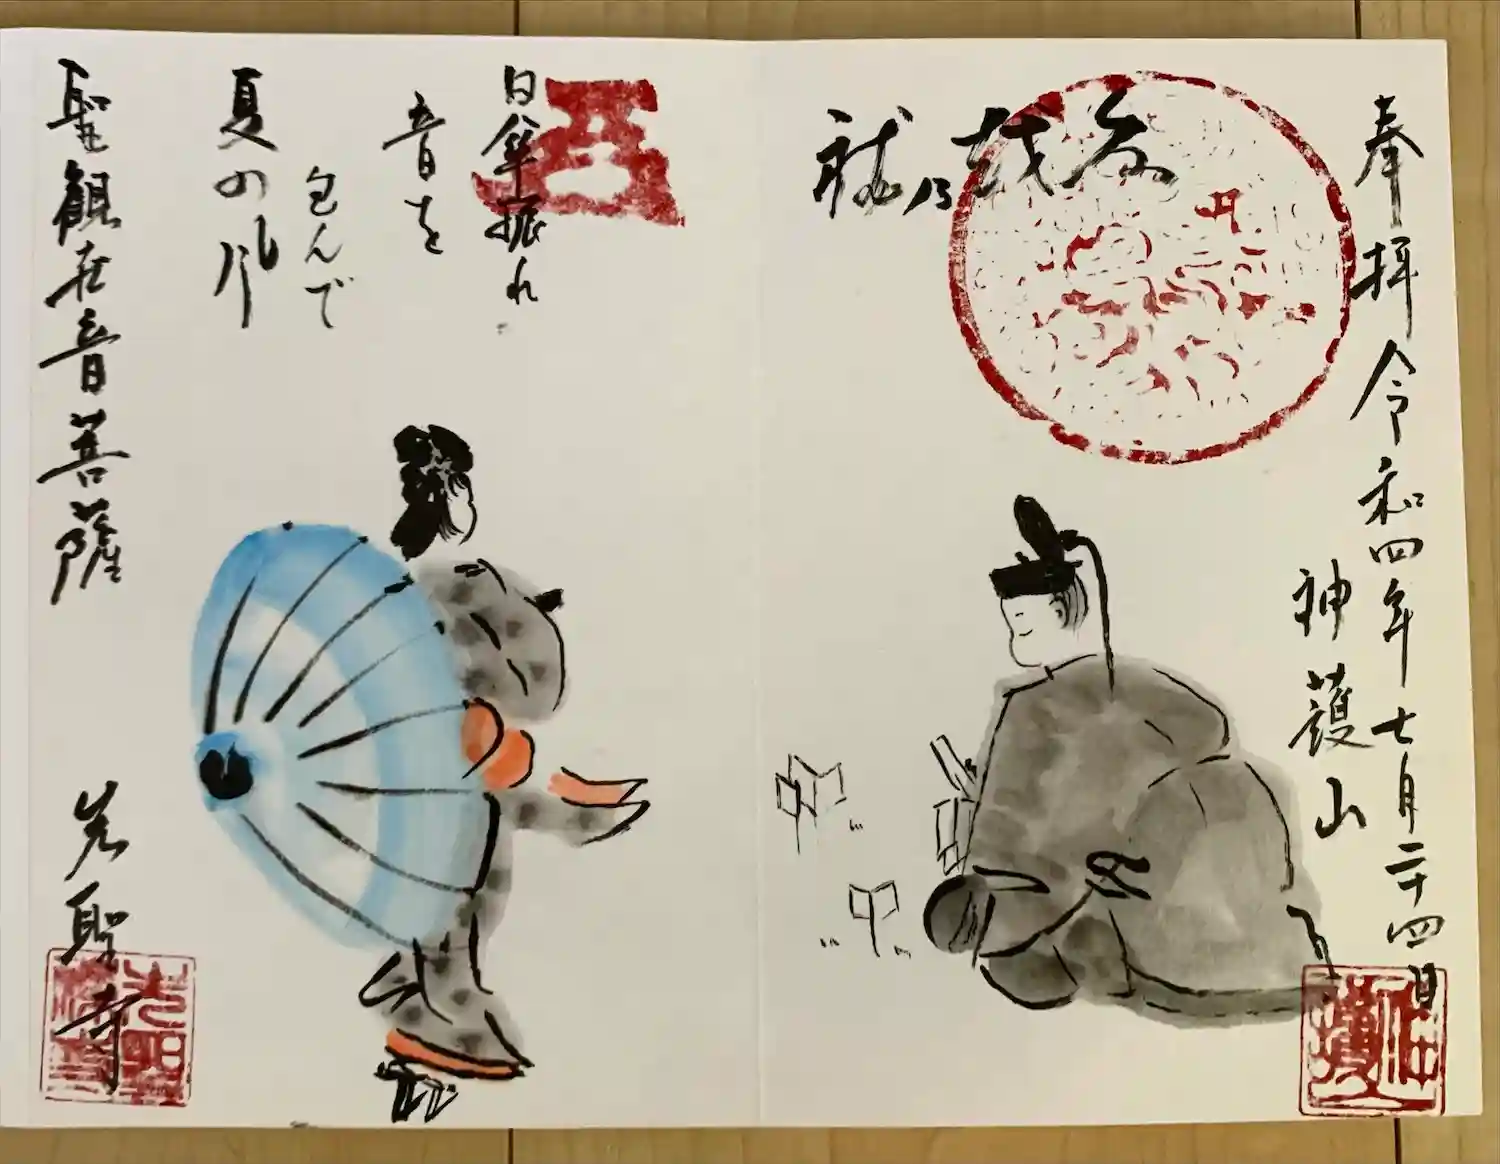 奉拝 令和四年七月二十四日
神護山
名越乃祓
日傘振れ
音を
包んで
夏の風
聖観世音菩薩
光聖寺